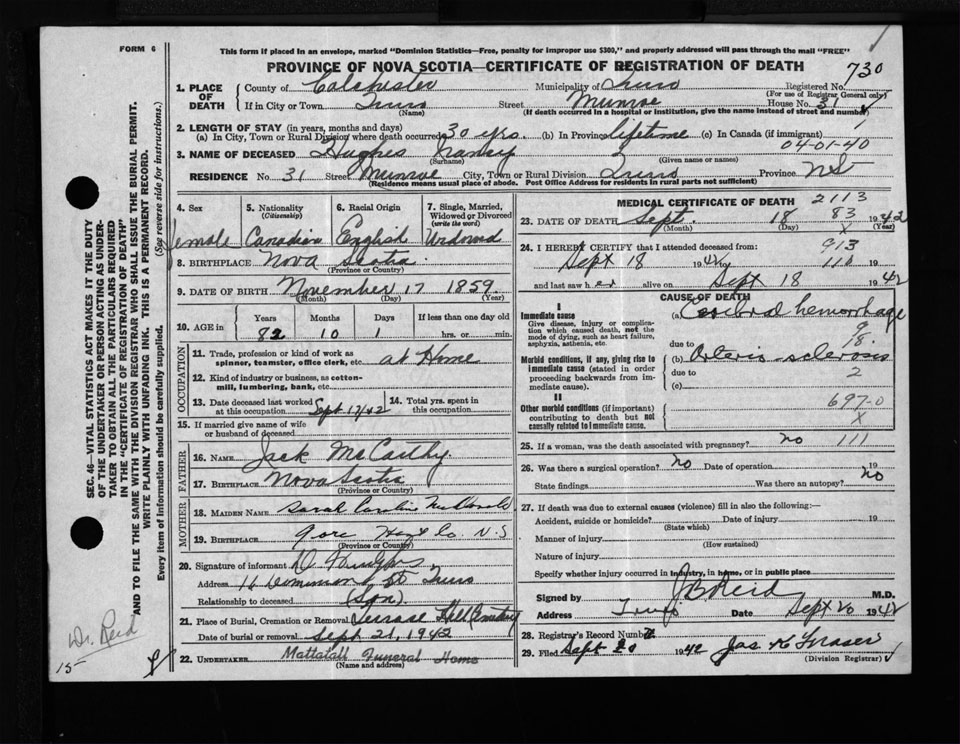 FORM 6
This form if placed in an envelope, marked "Dominion Statistics—Free, penalty for improper use $300," and properly addressed will pass through the mail "FREE"
PROVINCE OF NOVA SCOTIA—CERTIFICATE OF REGISTRATION OF DEATH
730
1. PLACE OF DEATH
County of Colchester Municipality of Truro Registered No.
(For use of Registrar General only)
If in City or Town Truro Street Munroe House No. 31
(Name) (If death occurred in a hospital or institution, give the name instead of street and number)
2. LENGTH OF STAY (in years, months and days)
(a) In City, Town or Rural Division where death occurred 30 yrs. (b) In Province lifetime (c) In Canada (if immigrant)
04-01-40
3. NAME OF DECEASED Hughes Nancy
(Surname) (Given name or names)
RESIDENCE No. 31 Street Munroe City, Town or Rural Division Truro Province NS
(Residence means usual place of abode. Post Office Address for residents in rural parts not sufficient)
4. Sex female
5. Nationality (Citizenship) Canadian
6. Racial Origin English
7. Single, Married, Widowed or Divorced (write the word) Widowed
8. BIRTHPLACE Nova Scotia
(Province or Country)
9. DATE OF BIRTH November 17 1859
(Month) (Day) (Year)
10. AGE in Years Months Days If less than one day old
82 10 1 hrs. or min.
OCCUPATION
11. Trade, profession or kind of work as spinner, teamster, office clerk, etc. at Home
12. Kind of industry or business, as cotton-mill, lumbering, bank, etc.
13. Date deceased last worked at this occupation Sept 17/42
14. Total yrs. spent in this occupation
15. If married give name of wife or husband of deceased
FATHER
16. NAME Jack McCarthy
17. BIRTHPLACE Nova Scotia
(Province or Country)
MOTHER
18. MAIDEN NAME Sarah Caroline McDonald
19. BIRTHPLACE Gore Co. N.S
(Province or Country)
20. Signature of informant
Address 16 Dominion St Truro
Relationship to deceased (Son)
21. Place of Burial, Cremation or Removal Terrace Hill Cemetery
Date of burial or removal Sept 21, 1942
22. UNDERTAKER Mattatall Funeral Home
(Name and address)
MEDICAL CERTIFICATE OF DEATH
2113
23. DATE OF DEATH Sept. 18 1942
(Month) (Day) (Year)
83
X
24. I HEREBY CERTIFY that I attended deceased from:
913
Sept 18 1942 to 19
110
and last saw her alive on Sept 18 1942
CAUSE OF DEATH
I
Immediate cause
Give disease, injury or complication which caused death, not the mode of dying, such as heart failure, asphyxia, asthenia, etc.
(a) Cerebral hemorrhage
9
due to 18.
Morbid conditions, if any, giving rise to immediate cause (stated in order proceeding backwards from immediate cause).
(b) Arterio-sclerosis
due to 2
(c)
II
Other morbid conditions (if important) contributing to death but not causally related to immediate cause.
697-0
X
25. If a woman, was the death associated with pregnancy? no
111
26. Was there a surgical operation? no Date of operation 19
State findings Was there an autopsy? no
27. If death was due to external causes (violence) fill in also the following:—
Accident, suicide or homicide? Date of injury 19
(State which)
Manner of injury
(How sustained)
Nature of injury
Specify whether injury occurred in industry, in home, or in public place
Signed by J B Reid M.D.
Address Truro Date Sept 20 1942
28. Registrar's Record Number
29. Filed Sept 20 1942 Jas K Fraser
(Division Registrar)
SEC. 46—VITAL STATISTICS ACT MAKES IT THE DUTY
OF THE UNDERTAKER OR PERSON ACTING AS UNDERTAKER TO OBTAIN ALL THE PARTICULARS REQUIRED
IN THE "CERTIFICATE OF REGISTRATION OF DEATH"
AND TO FILE THE SAME WITH THE DIVISION REGISTRAR WHO SHALL ISSUE THE BURIAL PERMIT.
WRITE PLAINLY WITH UNFADING INK. THIS IS A PERMANENT RECORD.
Every item of information should be carefully supplied. (See reverse side for instructions.)
Dr. Reid
15-